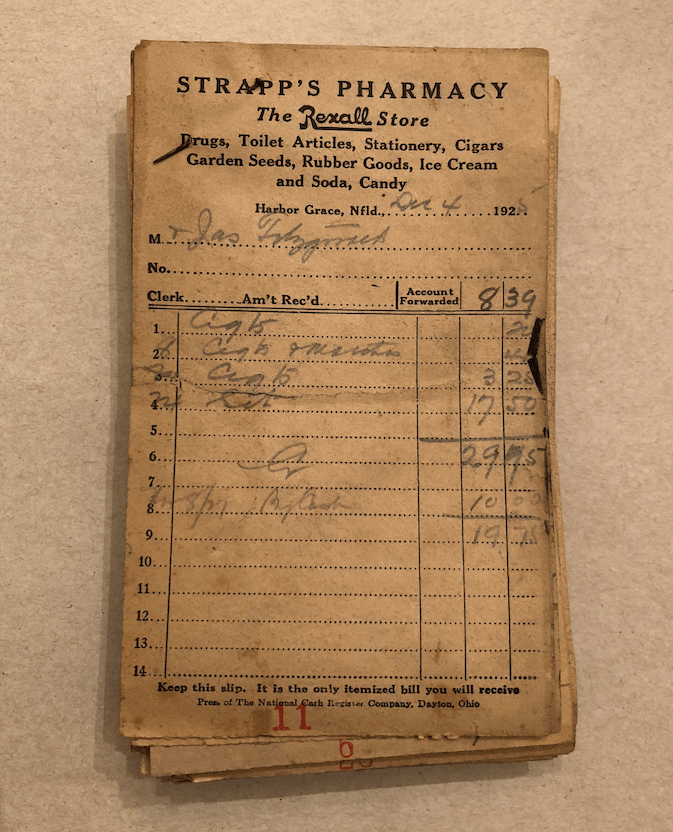 STRAPP'S PHARMACY
The Rexall Store
Drugs, Toilet Articles, Stationery, Cigars
Garden Seeds, Rubber Goods, Ice Cream
and Soda, Candy
Harbor Grace, Nfld., Dec 4 1925
M Jas
No.
Clerk Am't Rec'd Account Forwarded 8 39
1 Cigts
2 Cigts
3 Cigts 3 25
4 17 50
5
6 29 95
7
8 By Cash 10 00
9 19
10
11
12
13
14
Keep this slip. It is the only itemized bill you will receive
Press of The National Cash Register Company, Dayton, Ohio
11